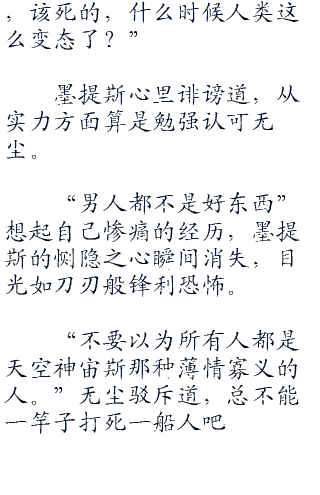 ，该死的，什么时候人类这
么变态了？”
墨提斯心里诽谤道，从
实力方面算是勉强认可无
尘。
“男人都不是好东西”
想起自己惨痛的经历，墨提
斯的恻隐之心瞬间消失，目
光如刀刃般锋利恐怖。
“不要以为所有人都是
天空神宙斯那种薄情寡义的
人。”无尘驳斥道，总不能
一竿子打死一船人吧